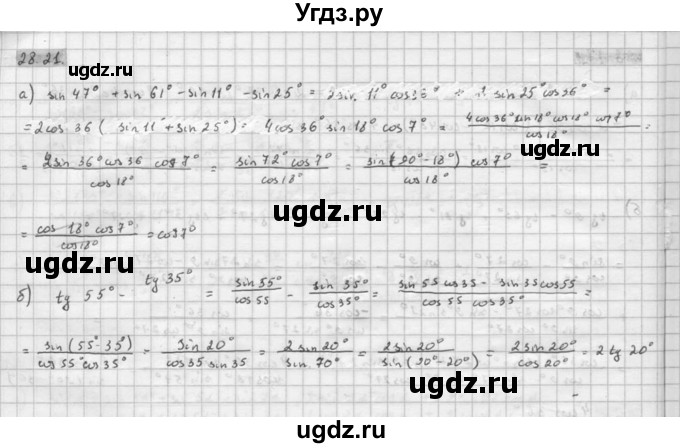 Угдз.ру
28.21.
а) sin 47° + sin 61° - sin 11° - sin 25° = 2 sin 11° cos 36° sin 25° cos 36° =
= 2cos 36 ( sin 11° + sin 25°) = 4cos 36° sin 18° cos 7° = 4cos 36° sin 18° cos 18° cos 7° / cos 18° =
= 2sin 36° cos 36 cos 7° / cos 18° = sin 72° cos 7° / cos 18° = sin(90°-18°) cos 7° / cos 18° =
= cos 18° cos 7° / cos 18° = cos 7°
б) tg 55° - tg 35° = sin 55° / cos 55 - sin 35° / cos 35° = sin 55 cos 35 - sin 35 cos 55 / cos 55 cos 35° =
= sin (55°-35°) / cos 55° cos 35° = sin 20° / cos 35 sin 35 = 2 sin 20° / sin 70° = 2 sin 20° / sin (90°-20°) = 2 sin 20° / cos 20° = 2 tg 20°
ugdz.ru
ugdz.ru
ugdz.ru
ugdz.ru
ugdz.ru
ugdz.ru
ugdz.ru
Угдз.ру